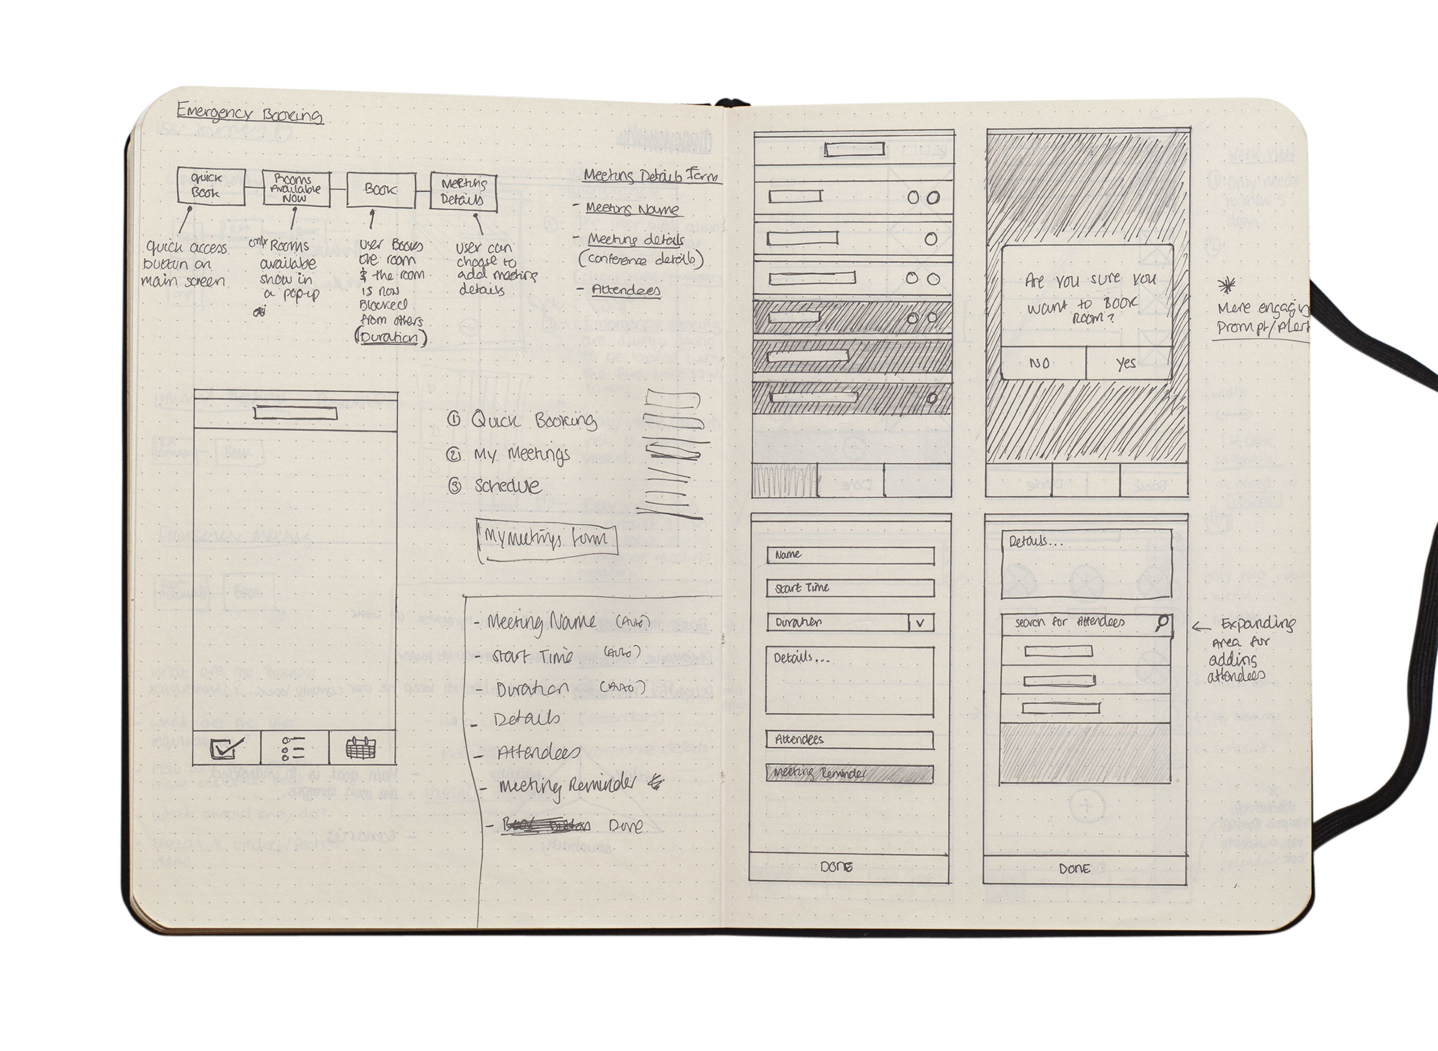 Emergency Booking
Quick
Book
Rooms
Available
Now
Book
Meeting
Details
Quick access
button on
main screen
only Rooms
available
show in
a pop-up
user Books
the room
& the room
is now
Blocked
from others
(Duration)
user can
choose to
add meeting
details
Meeting Details Form
- Meeting Name
- Meeting details
(conference details)
- Attendees
① Quick Booking
② My Meetings
③ Schedule
My Meetings Form
- Meeting Name (Auto)
- Start Time (Auto)
- Duration (Auto)
- Details
- Attendees
- Meeting Reminder
- Done
Are you sure you
want to Book
Room?
No
Yes
* More engaging
Prompt/Alert
Name
Start Time
Duration
Details...
Attendees
Meeting Reminder
DONE
Details...
Search for Attendees
DONE
← Expanding
Area for
adding
attendees